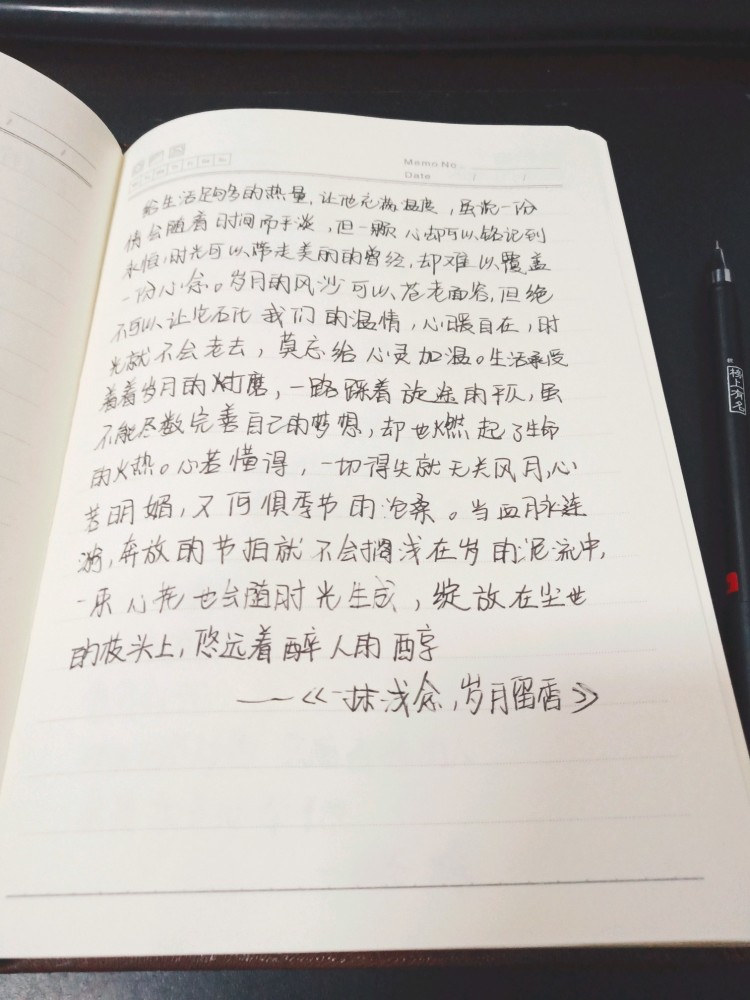 Memo No.
Date / /
给生活足够多的热量,让他充满温度,虽说一份
情会随着时间而平淡,但一颗心却可以铭记到
永恒,时光可以带走美丽的曾经,却难以覆盖
一份心念。岁月的风沙可以苍老面容,但绝
不可以让它石化我们的温情,心暖自在,时
光就不会老去,莫忘给心灵加温。生活承受
着着岁月的打磨,一路踩着旋途的平仄,虽
不能尽数完善自己的梦想,却也燃起了生命
的火热。心若懂得,一切得失就无关风月,心
若明媚,又何惧季节的沧桑。当血脉连
,奔放的节拍就不会搁浅在岁的泥流中,
一朵心花也会随时光生成,绽放在尘世
的枝头上,悠远着醉人的酉享
——《一抹浅念,岁月留香》
榜上有名